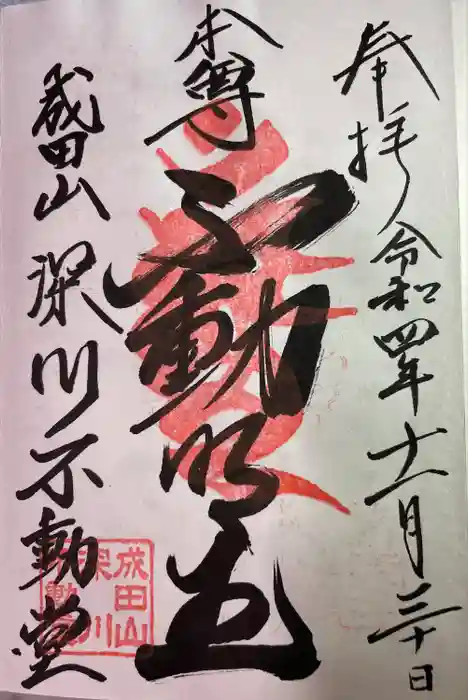 奉拝 令和四年十一月三十日
本尊
不動明王
成田山深川不動堂
成田山
深川
不動堂